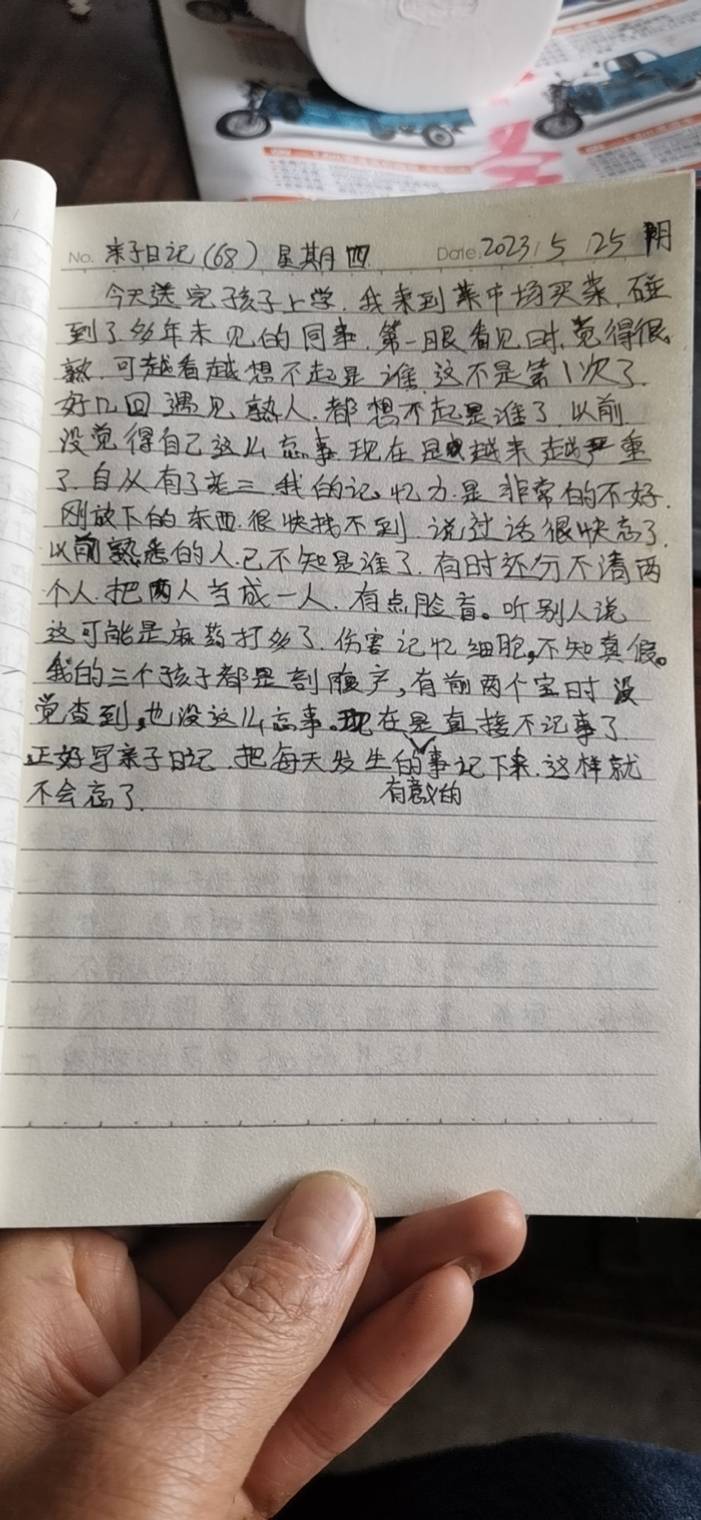 No. 亲子日记(68) 星期四 Date. 2023. 5. 25 阴
今天送完孩子上学. 我来到菜市场买菜. 碰
到了多年未见的同事. 第一眼看见时. 觉得很
熟. 可越看越想不起是谁. 这不是第1次了.
好几回遇见熟人. 都想不起是谁了. 以前
没觉得自己这么忘事. 现在是越来越严重
了. 自从有了老三. 我的记忆力. 是非常的不好.
刚放下的东西. 很快找不到. 说过话很快忘了.
以前熟悉的人. 已不知是谁了. 有时还分不清两
个人. 把两人当成一人. 有点脸盲。听别人说
这可能是麻药打多了. 伤害记忆细胞, 不知真假。
我的三个孩子都是剖腹产, 有前两个宝时没
觉查到, 也没这么忘事。现在是直接不记事了
正好写亲子日记. 把每天发生的有意义的事记下来. 这样就
不会忘了.